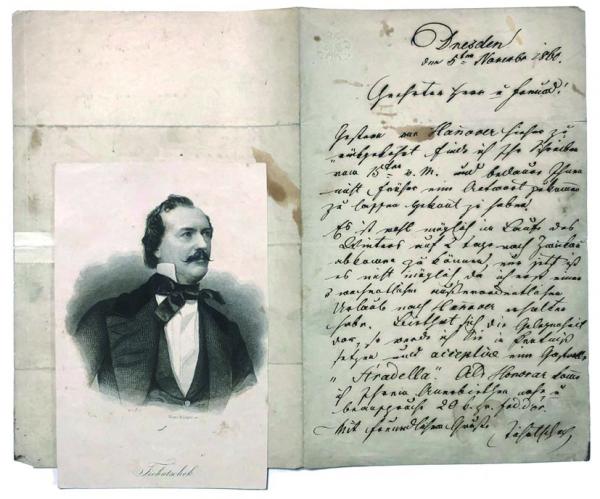 Dresden
den 5ten November 1860.
Geehrter Herr u Freund!
Gestern von Hannover hieher zu
rückgekehrt finde ich Ihr Schreiben
vom v. M. und bedaure Ihnen
nicht früher eine Antwort zukommen
zu lassen gekonnt zu haben.
Es ist wohl möglich im Laufe des
Winters auf 2 Tage nach Zwickau
abkommen zu können, nur jetzt ist
es nicht möglich da ich erst einen
wochentlichen außerordentlichen
Urlaub nach Hannover erhalten
habe. Bietet sich die Gelegenheit
dar, so werde ich Sie in Kentniß
setzen und acceptire eine Gastrolle
"Stradella". Als Honorar komme
ich Ihrem Anerbiethen nach u
beanspruche 20
Mit freundlichem Gruße Tichatschek
Tichatschek.